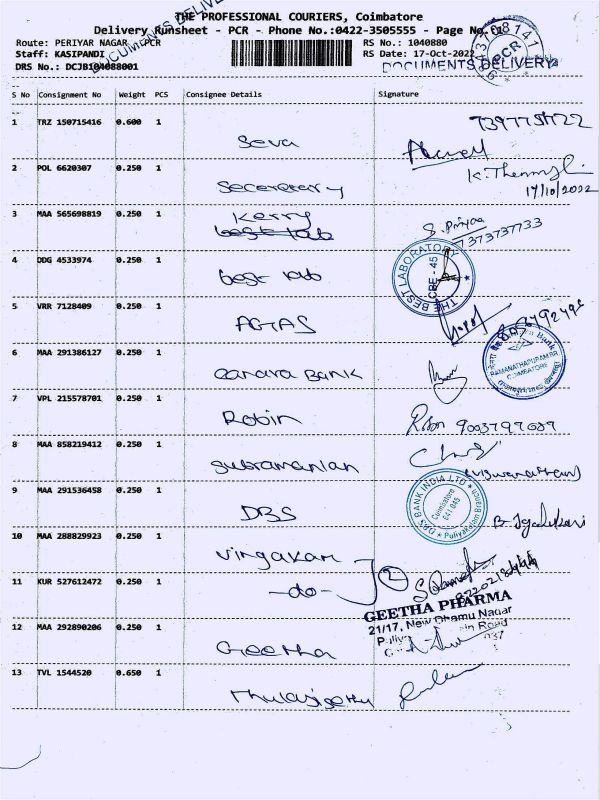 THE PROFESSIONAL COURIERS, Coimbatore
Delivery Runsheet - PCR - Phone No.:0422-3505555 - Page No.:1
Route: PERIYAR NAGAR PCR
RS No.: 1040880
Staff: KASIPANDI
RS Date: 17-Oct-2022
DRS No.: DCJB104088001
DOCUMENTS DELIVERY
S No Consignment No Weight PCS Consignee Details Signature
1 TRZ 150715416 0.600 1 Seva
2 POL 6620307 0.250 1 Secereterry
17/10/2022
3 MAA 565698819 0.250 1 Kerry
best lab
S. Priyaa
7373737733
4 DDG 4533974 0.250 1 best lab
THE BEST LABORATORY
CBE - 45
5 VRR 7128409 0.250 1 AGTAS
6 MAA 291386127 0.250 1 Canara Bank
RAMANATHAPURAM BR.
COIMBATORE
7 VPL 215578701 0.250 1 Robin
8 MAA 858219412 0.250 1 Subramanian
9 MAA 291536458 0.250 1 DBS
DBS BANK INDIA LTD
Coimbatore
641 045
10 MAA 288829923 0.250 1
11 KUR 527612472 0.250 1 -do-
2
GEETHA PHARMA
21/17, New Dhamu Nagar
12 MAA 292890206 0.250 1 Geetha
13 TVL 1544520 0.650 1